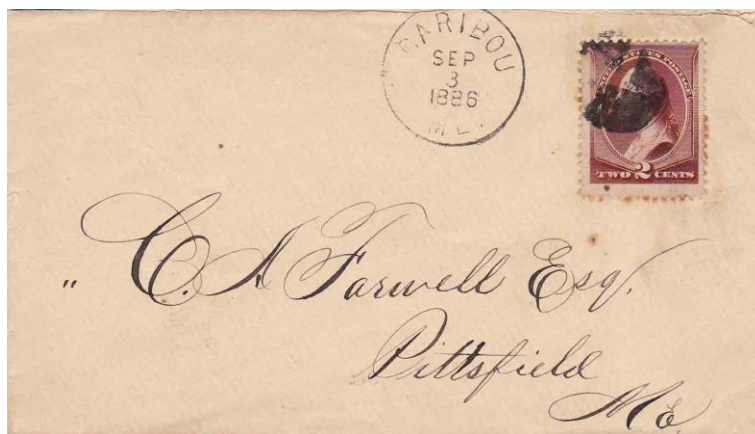 CARIBOU
SEP
3
1886
ME.
UNITED STATES POSTAGE
TWO 2 CENTS
" C. A Farwell Esq.
Pittsfield
Me